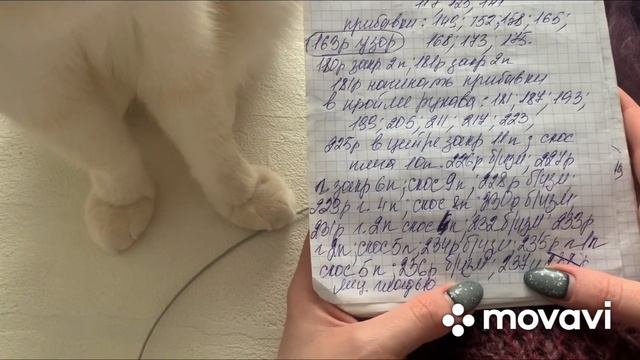 117 123, 141
прибавки: 149; 152; 158; 165;
163р узор 168; 173, 175.
180р закр 2п, 181р закр 2п
181р начинать прибавки
в пройме рукава: 181; 187; 193;
199; 205, 211; 217; 223,
225р в центре закр 11п; скос
плеча 10п. 226р б/изм, 227р
г закр 6п; скос 9п; 228р б/изм;
229р г. 4п; скос 8п; 230р б/изм
231р г. 2п скос 4п; 232 б/изм; 233р
г 2п; скос 5п, 234р б/изм; 235р г 1п
скос 5п; 236р б/изм; 237р
лиц. гладью
movavi